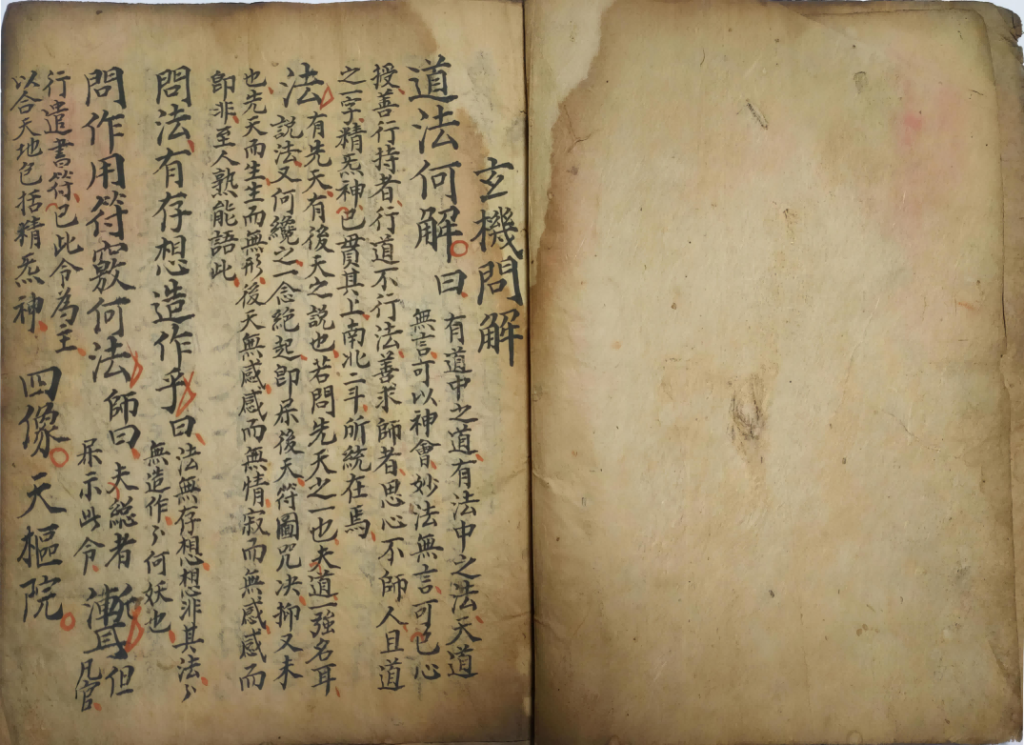 玄機問解
道法何解曰
有道中之道有法中之法天道
無言可以神會妙法無言可已心
授善行持者行道不行法善求師者思心不師人且道
之一字精炁神已貫其上南北二斗所統在焉
法有先天有後天之說也若問先天之一也夫道一強名耳
說法又何纔之一念絕起卽呆後天符圖咒决抑又未
也先天而生生而無形後天無感感而無情寂而無感感而
卽非至人熟能語此
問法有存想造作乎曰
法無存想想非其法〻
無造作〻何妖也
問作用符竅何法師曰夫総者
但
呆示此令
凡官
行遣書符已此令為主
以合天地包括精炁神
四像天樞院